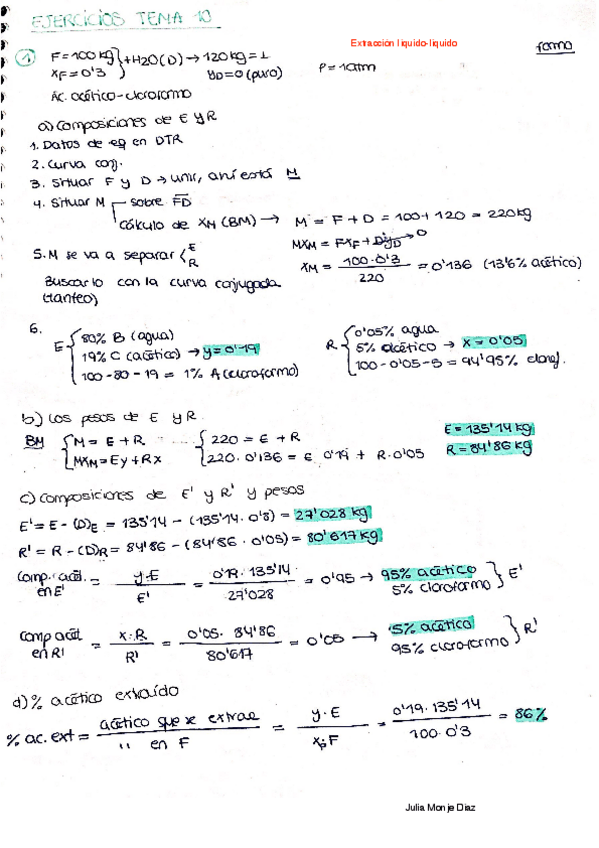 EJERCICIOS TEMA 10
Extracción líquido-líquido
forma
① F = 100 kg } + H2O (D) → 120 kg = L
XF = 0'3   yD = 0 (puro)   P = 1 atm
Ác. acético - cloroformo
a) Composiciones de E y R
1. Datos de eq en DTR
2. Curva conj.
3. Situar F y D → unir, ahí está M
4. Situar M sobre FD
cálculo de XM (BM) → M = F + D = 100 + 120 = 220 kg
MXM = FXF + DyD → 0
XM = 100·0'3 / 220 = 0'136 (13'6% acético)
5. M se va a separar { E R
Buscarlo con la curva conjugada
(tanteo)
6.
E { 80% B (agua)
19% C (acético) → y = 0'19
100 - 80 - 19 = 1% A (cloroformo)
R { 0'05% agua
5% acético → x = 0'05
100 - 0'05 - 5 = 94'95% clorof.
b) Los pesos de E y R
BM { M = E + R ...... { 220 = E + R
MXM = Ey + Rx   220·0'136 = E 0'19 + R·0'05
E = 135'14 kg
R = 84'86 kg
c) Composiciones de E' y R' y pesos
E' = E - (D)E = 135'14 - (135'14·0'8) = 27'028 kg
R' = R - (D)R = 84'86 - (84'86·0'05) = 80'617 kg
Comp. acét. en E' = y·E / E' = 0'19·135'14 / 27'028 = 0'95 → 95% acético
5% cloroformo } E'
Comp acét en R' = x·R / R' = 0'05·84'86 / 80'617 = 0'05 → 5% acético
95% cloroformo } R'
d) % acético extraído
% ac. ext = acético que se extrae / " en F = y·E / xF·F = 0'19·135'14 / 100·0'3 = 86%
Julia Monje Diaz